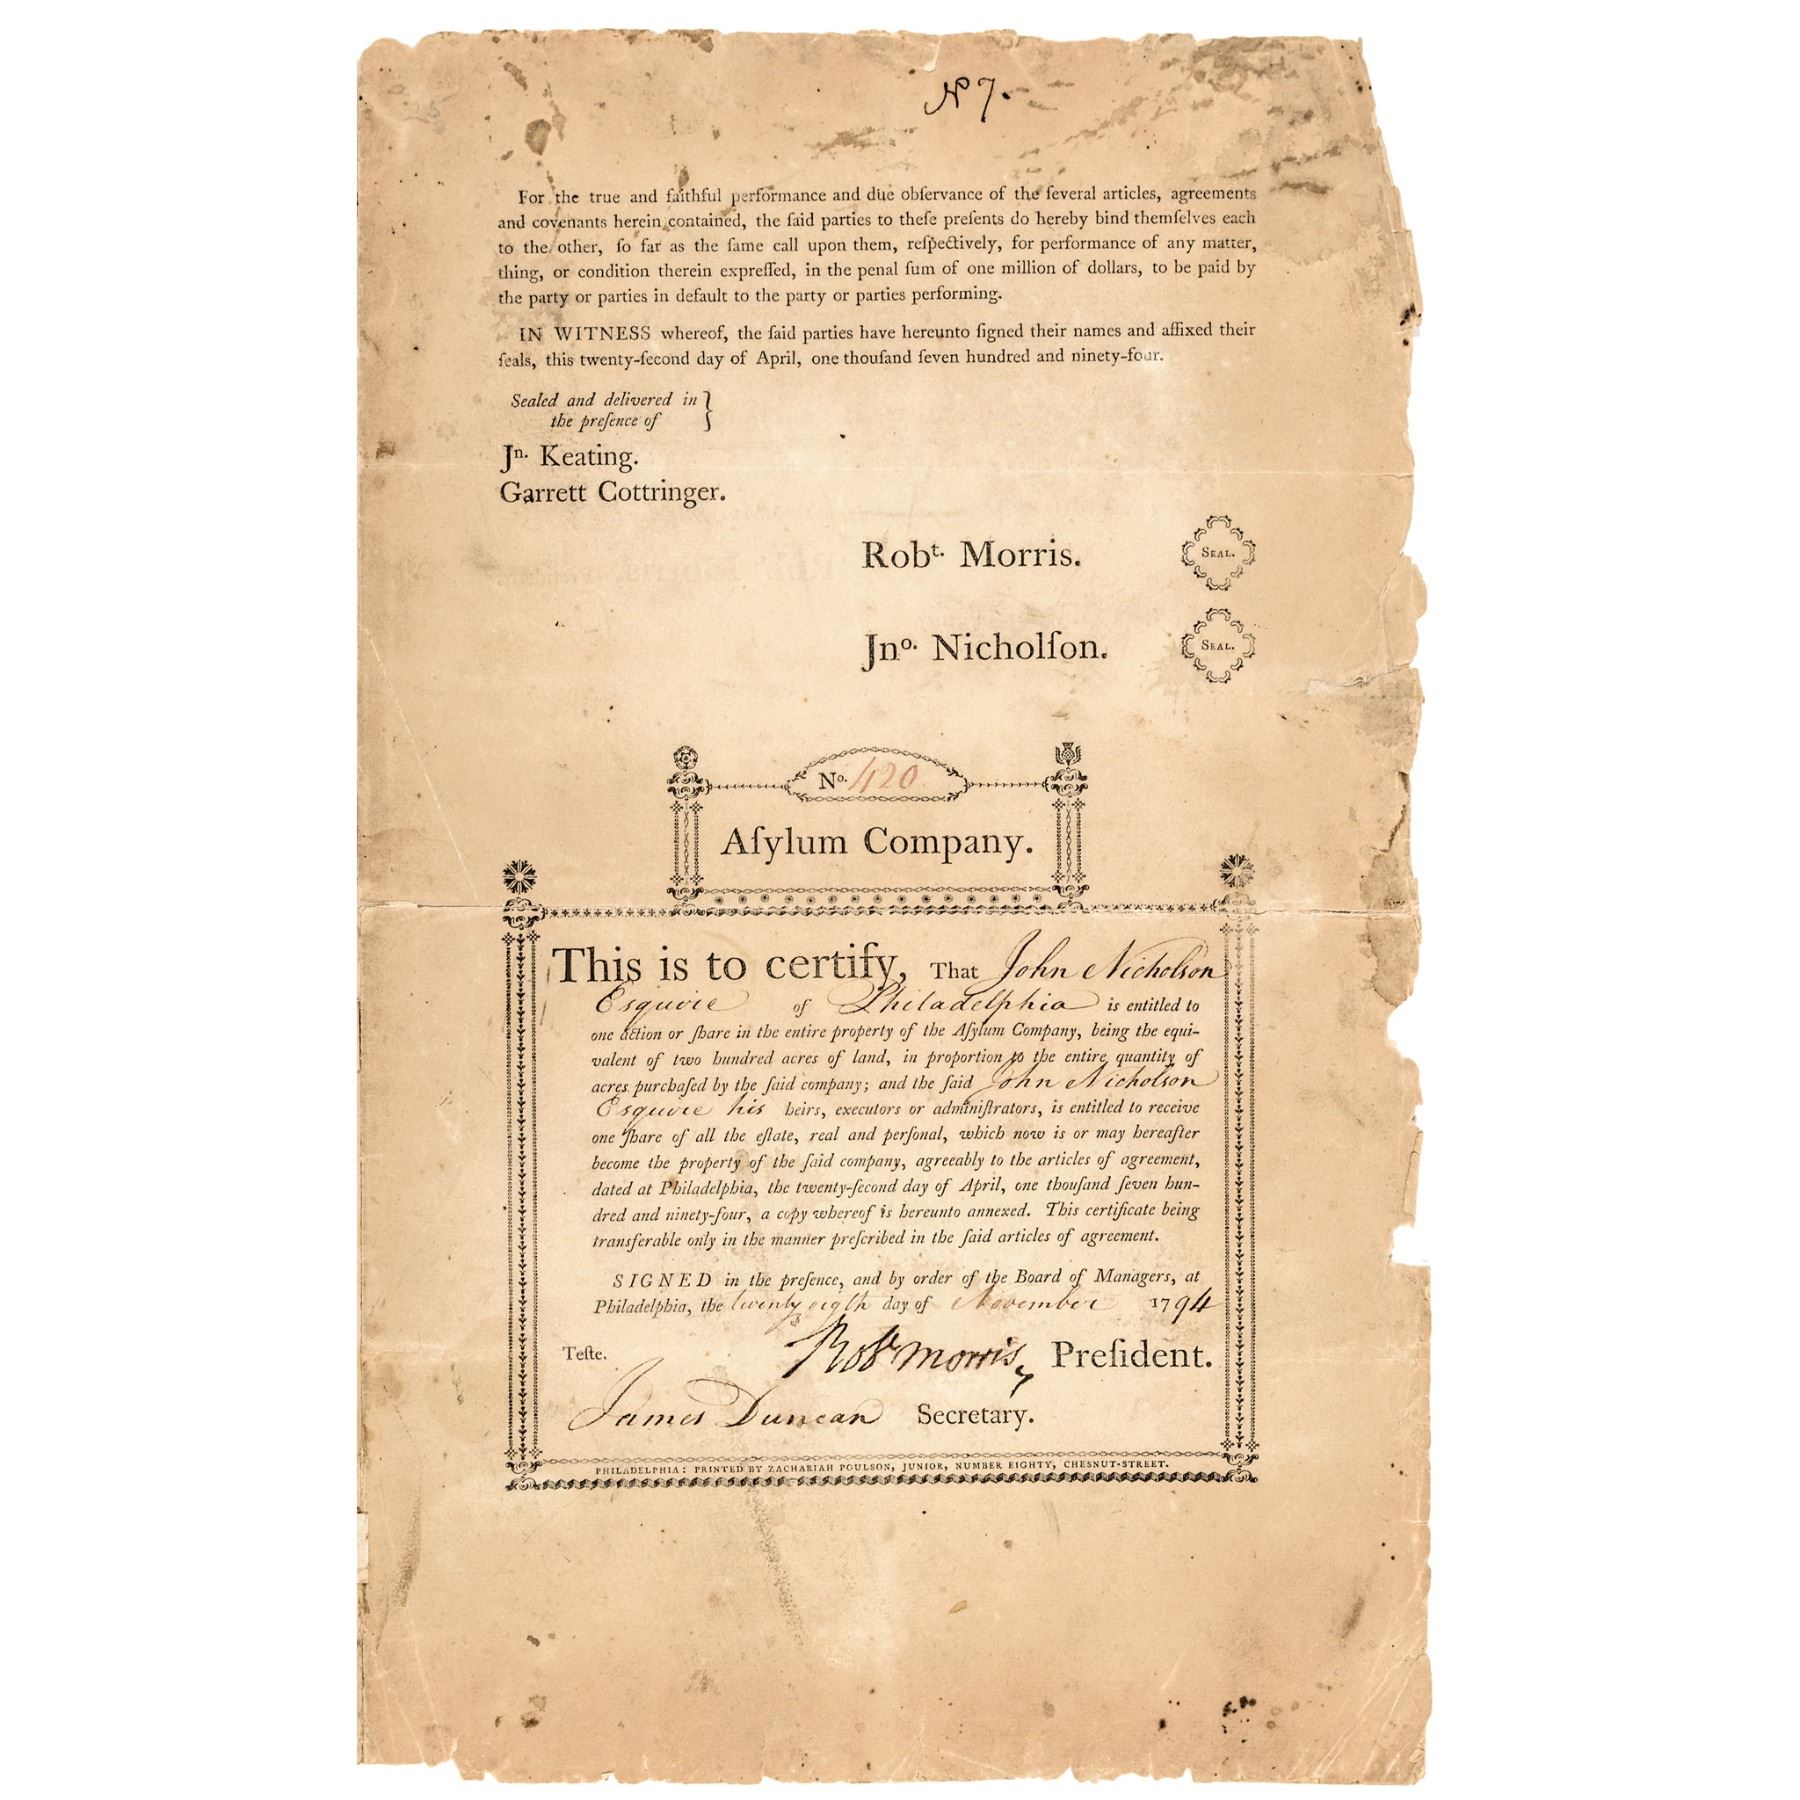 No 7.
For the true and faithful performance and due obſervance of the ſeveral articles, agreements
and covenants herein contained, the ſaid parties to theſe preſents do hereby bind themſelves each
to the other, ſo far as the ſame call upon them, reſpectively, for performance of any matter,
thing, or condition therein expreſſed, in the penal ſum of one million of dollars, to be paid by
the party or parties in default to the party or parties performing.
IN WITNESS whereof, the ſaid parties have hereunto ſigned their names and affixed their
ſeals, this twenty-ſecond day of April, one thouſand ſeven hundred and ninety-four.
Sealed and delivered in }
the preſence of
Jn. Keating.
Garrett Cottringer.
Robt. Morris. SEAL.
Jno. Nicholſon. SEAL.
No. 420
Aſylum Company.
This is to certify, That John Nicholson
Esquire of Philadelphia is entitled to
one action or ſhare in the entire property of the Aſylum Company, being the equi-
valent of two hundred acres of land, in proportion to the entire quantity of
acres purchaſed by the ſaid company; and the ſaid John Nicholson
Esquire his heirs, executors or adminiſtrators, is entitled to receive
one ſhare of all the eſtate, real and perſonal, which now is or may hereafter
become the property of the ſaid company, agreeably to the articles of agreement,
dated at Philadelphia, the twenty-ſecond day of April, one thouſand ſeven hun-
dred and ninety-four, a copy whereof is hereunto annexed. This certificate being
transferable only in the manner preſcribed in the ſaid articles of agreement.
SIGNED in the preſence, and by order of the Board of Managers, at
Philadelphia, the twenty eigth day of November 1794
Teſte. Robt Morris, Preſident.
James Duncan Secretary.
PHILADELPHIA: PRINTED BY ZACHARIAH POULSON, JUNIOR, NUMBER EIGHTY, CHESNUT-STREET.